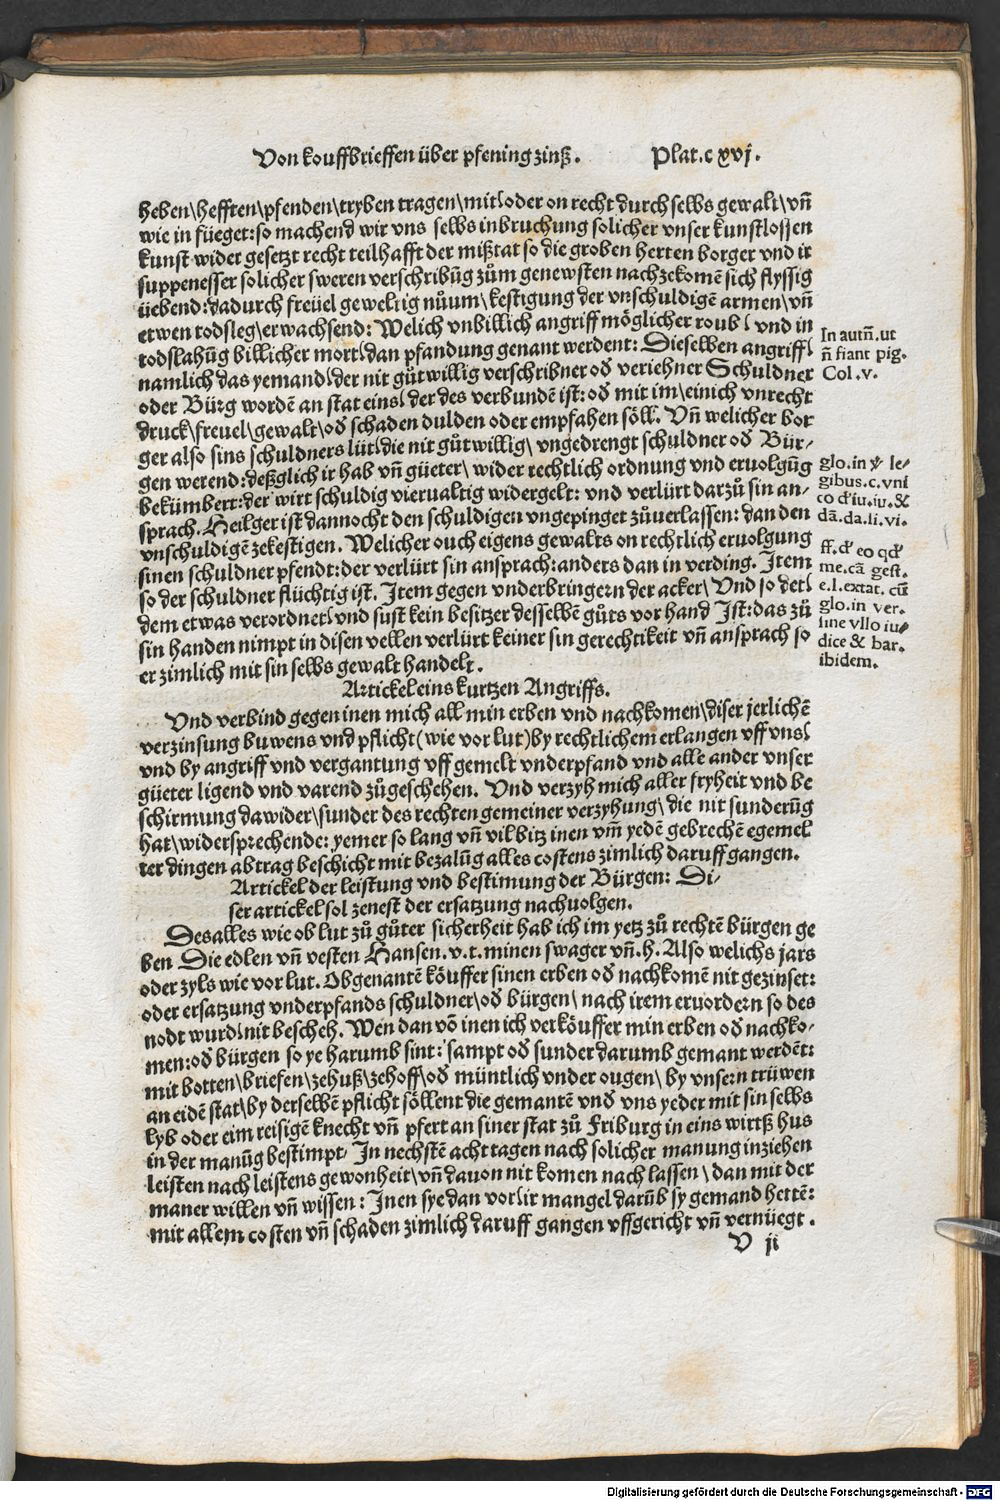 Von kouffbrieffen über pfening zinß. Plat. c xvj.
heben\hefften\pfenden\tryben tragen\mit\oder on recht durch selbs gewalt\vñ
wie in füeget: so machend wir vns selbs inbruchung solicher vnser kunstlossen
kunst wider gesetzt recht teilhafft der mißtat so die groben herten borger vnd ir
suppenesser solicher sweren verschribũg zům genewsten nachzekomẽ sich flyssig
üebend: dadurch freüel geweltig nůum\kestigung der vnschuldigẽ armen\vñ
etwen todsleg\erwachsend: Welich vnbillich angriff möglicher roub\ vnd in
todslahũg billicher mort\dan pfandung genant werdent: Dieselben angriff\
namlich das yemand\der nit gůtwillig verschribner oď veriehner Schuldner
oder Bürg wordẽ an stat eins\der des verbundẽ ist: oď mit im\einich vnrecht
druck\freuel\gewalt\oď schaden dulden oder empfahen söll. Vñ welicher bor
ger also sins schuldners lüt\die nit gůtwillig\ vngedrengt schuldner oď Bür-
gen werend: deßglich ir hab vñ güeter\ wider rechtlich ordnung vnd eruolgũg
bekümbert: der wirt schuldig vierualtig widergelt: vnd verlürt darzů sin an-
sprach. Heilger ist dannocht den schuldigen vngepinget zůuerlassen: dan den
vnschuldigẽ zekestigen. Welicher ouch eigens gewalts on rechtlich eruolgung
sinen schuldner pfendt: der verlürt sin ansprach: anders dan in verding. Item
so der schuldner flüchtig ist. Item gegen vnderbringern der acker\ Vnd so det\
dem etwas verordnet\vnd sust kein besitzer desselbẽ gůts vor hand Ist: das zů
sin handen nimpt in disen vellen verlürt keiner sin gerechtikeit vñ ansprach so
er zimlich mit sin selbs gewalt handelt.
In autñ. ut
ñ fiant pig.
Col. v.
glo. in le-
gibus. c. vni
co ď iu. iu. &
dã. da. li. vi.
ff. ď eo qď
me. cã gest.
e. l. extat. cũ
glo. in ver.
sine vllo iu-
dice & bar.
ibidem.
Artickel eins kurtzen Angriffs.
Vnd verbind gegen inen mich all min erben vnd nachkomen\diser jerlichẽ
verzinsung buwens vnd pflicht (wie vor lut) by rechtlichem erlangen vff vns\
vnd by angriff vnd vergantung vff gemelt vnderpfand vnd alle ander vnser
güeter ligend vnd varend zůgeschehen. Vnd verzyh mich aller fryheit vnd be
schirmung dawider\sunder des rechten gemeiner verzyhung\ die nit sunderũg
hat\widersprechende: yemer so lang vñ vil bitz inen vm̃ yedẽ gebrechẽ egemel
ter dingen abtrag beschicht mit bezalũg alles costens zimlich daruff gangen.
Artickel der leistung vnd bestimung der Bürgen: Di-
ser artickel sol zenest der ersatzung nachuolgen.
Des alles wie ob lut zů gůter sicherheit hab ich im yetz zů rechtẽ bürgen ge
ben Die edlen vñ vesten Hansen. v. t. minen swager vñ. h. Also welichs jars
oder zyls wie vor lut. Obgenantẽ köuffer sinen erben oď nachkomẽ nit gezinset:
oder ersatzung vnderpfands schuldner\oď bürgen\ nach irem eruordern so des
nodt wurd\nit bescheh. Wen dan võ inen ich verköuffer min erben oď nachko-
men: oď bürgen so ye harumb sint: sampt oď sunder darumb gemant werdẽt:
mit botten\briefen\zehuß\zehoff\oď müntlich vnder ougen\ by vnsern trüwen
an eidẽ stat\by derselbẽ pflicht söllent die gemantẽ vnď vns yeder mit sin selbs
lyb oder eim reisigẽ knecht vñ pfert an siner stat zů Friburg in eins wirtß hus
in der manũg bestimpt\ In nechstẽ acht tagen nach solicher manung inziehen
leisten nach leistens gewonheit\vñ dauon nit komen nach lassen\ dan mit der
maner willen vñ wissen: Inen sye dan vor\ir mangel darũb sy gemand hettẽ:
mit allem costen vñ schaden zimlich daruff gangen vffgericht vñ vernüegt.
V ij
Digitalisierung gefördert durch die Deutsche Forschungsgemeinschaft - DFG